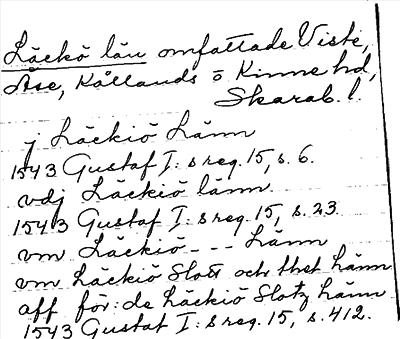 Läckö län omfattade Viste,
Åse, Kållands o Kinne hd,
Skarab. l.
j Läckiö Länn
1543 Gustaf I: s reg. 15, s. 6.
vdj Läckiö länn
1543 Gustaf I: s reg. 15, s. 23.
vm Läckiö - - - Länn
vm Läckiö Slott och thet Länn
aff för: de Läckiö Slotz Länn
1543 Gustaf I: s reg. 15, s. 412.